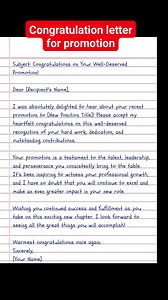 Congratulation letter
for promotion
Subject: Congratulations on Your Well-Deserved
Promotion!
Dear [Recipient's Name],
I was absolutely delighted to hear about your recent
promotion to [New Position Title]! Please accept my
heartfelt congratulations on this well-deserved
recognition of your hard work, dedication, and
outstanding contributions.
Your promotion is a testament to the talent, leadership,
and perseverance you consistently bring to the table.
It's been inspiring to witness your professional growth,
and I have no doubt that you will continue to excel and
make an even greater impact in your new role.
Wishing you continued success and fulfillment as you
take on this exciting new chapter. I look forward to
seeing all the great things you will accomplish!
Warmest congratulations once again.
Sincerely,
[Your Name]